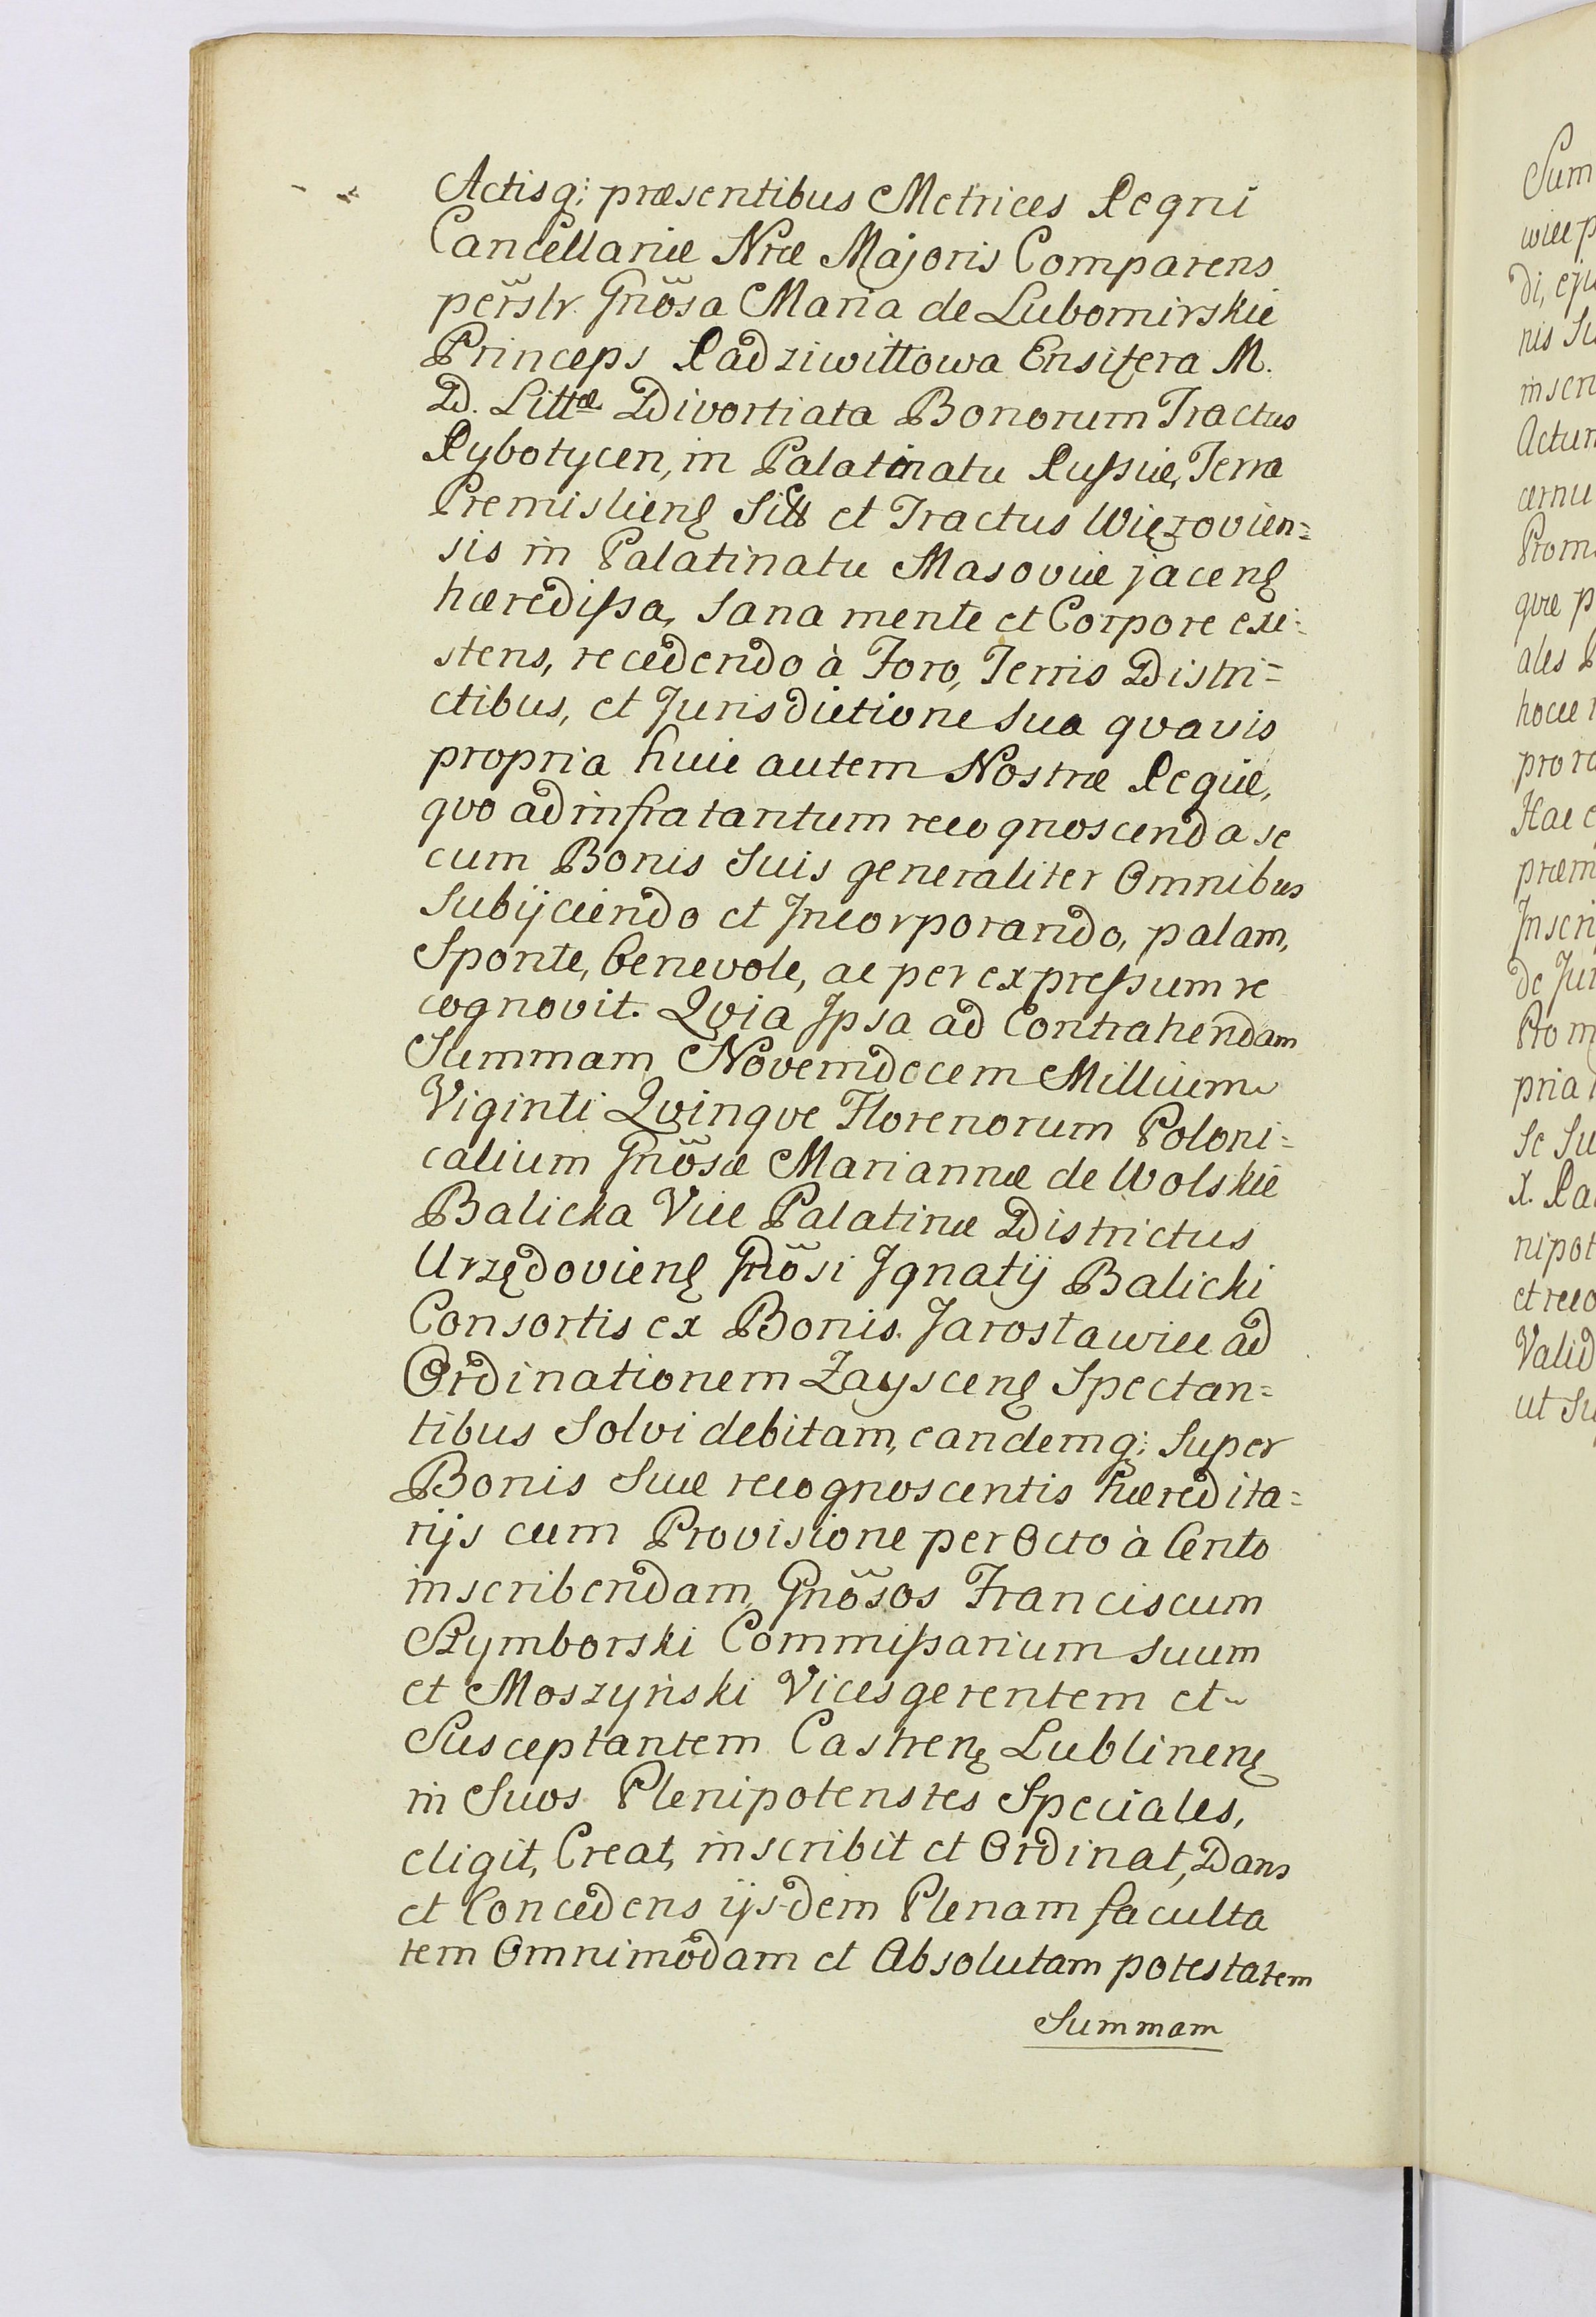 Actisq; præsentibus Metrices Regni
Cancellariæ Nræ Majoris Comparens
perslr. Gnosa Maria de Lubomirskie
Princeps Radziwiłłowa Ensifera M.
D. Littæ Divortiata Bonorum Tractus
Rybotycen, in Palatinatu Russiæ, Terra
Premislieng Sitt et Tractus Więzovien=
sis in Palatinatu Masoviæ jaceng
hæredissa, Sana mente et Corpore exi=
stens, recedendo à Foro, Terris Distri=
ctibus, et Jurisdictione sua quavis
propria huic autem Nostræ Regiæ,
quo ad infra tantum recognoscenda se
cum Bonis Suis generaliter Omnibus
Subijciendo et Incorporando, palam,
Sponte, benevole, ac per expressum re
cognovit. Quia Ipsa ad Contrahendam
Summam Novemdecem Millium
Viginti Quinque Florenorum Poloni=
calium Gnosæ Mariannæ de Wolskie
Balicka Vice Palatinæ Districtus
Urzędovieng Gnosi Ignatij Balicki
Consortis ex Bonis Jarosławice ad
Ordinationem Zaysceng Spectan=
tibus Solvi debitam, eandemq; Super
Bonis Suæ recognoscentis hæredita=
rijs cum Provisione per Octo à Cento
inscribendam, Gnosos Franciscum
Rymborski Commissarium suum
et Moszyński Vicesgerentem et
Susceptantem Castreng Lublineng
in Suos Plenipotenstes Speciales,
eligit, Creat, inscribit et Ordinat, Dans
et Concedens ijsdem Plenam faculta
tem Omnimodam et Absolutam potestatem
Summam